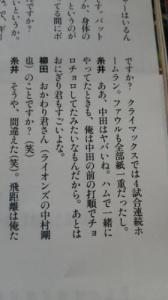 はいるん
す。バット
か、身体の
てる間にボ
ですか？　クライマックスでは4試合連続ホ
ームラン。ファウルも全部紙一重だったし。
糸井　ああ、中田はヤバいね。ハムで一緒に
やってたときも、俺は中田の前の打順でチョ
ロチョロしてたみたいなもんだから。あとは
おにぎり君もすごいよな。
柳田　おかわり君さん（ライオンズの中村剛
也）のことですか？（笑）
糸井　そうや、間違えた（笑）。飛距離は俺た